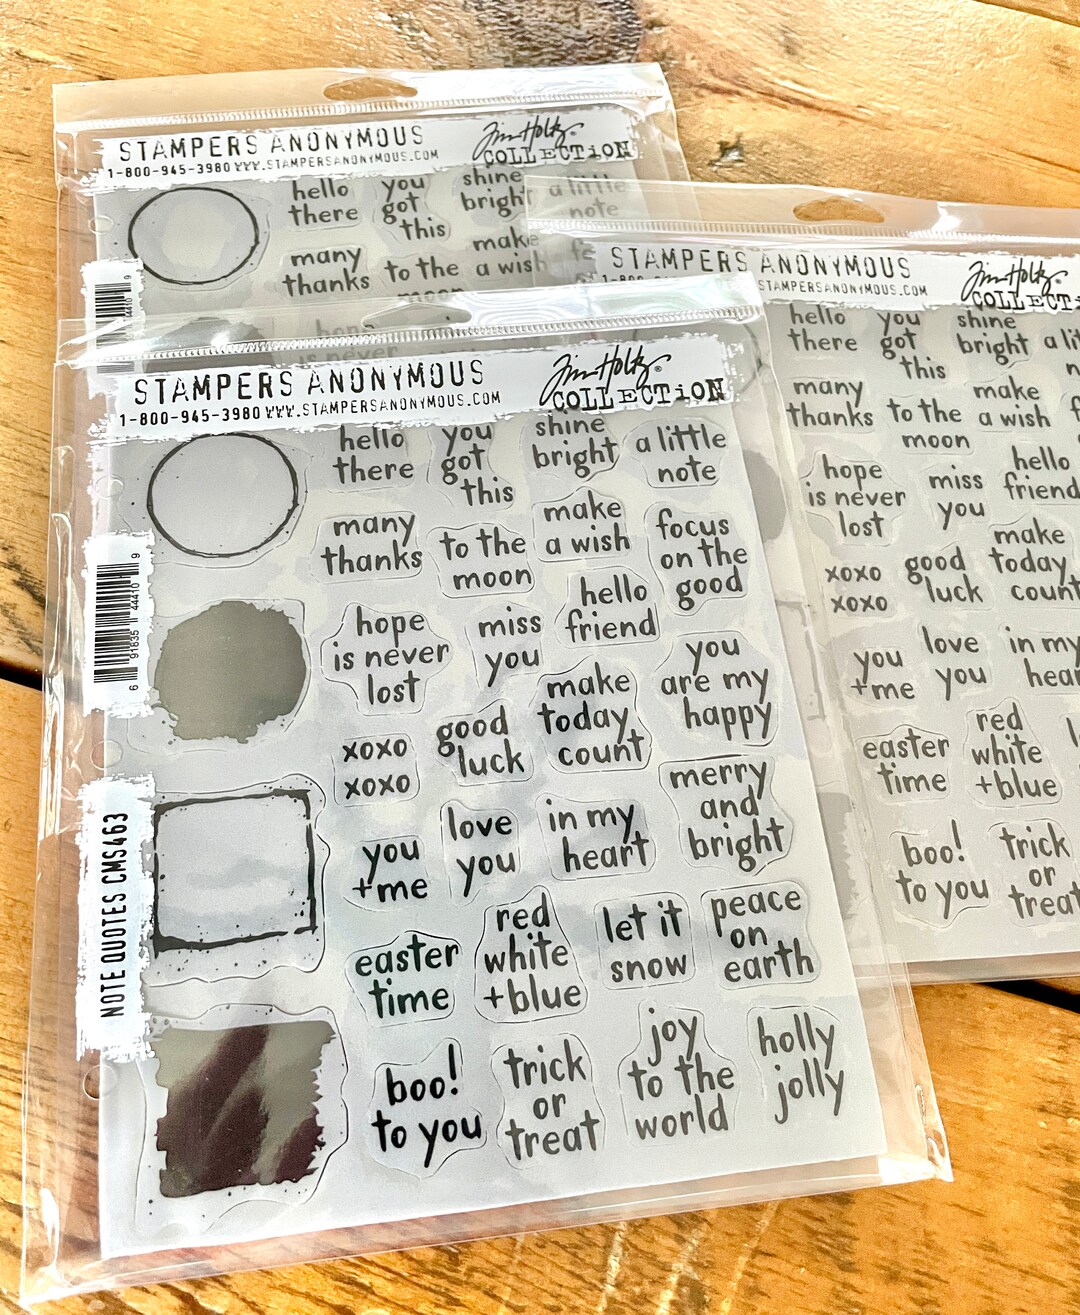 STAMPERS ANONYMOUS
Tim Holtz®
COLLECTiON
1-800-945-3980 WWW.STAMPERSANONYMOUS.COM
hello
there
you
got
this
shine
bright
a little
note
many
thanks
to the
moon
make
a wish
STAMPERS ANONYMOUS
Tim Holtz®
WWW.STAMPERSANONYMOUS.COM
hello
there
you
got
this
shine
bright
many
thanks
to the
moon
make
a wish
hope
is never
lost
miss
you
hello
friend
xoxo
xoxo
good
luck
make
today
count
you
+me
love
you
in my
easter
time
red
white
+blue
boo!
to you
trick
or
treat
STAMPERS ANONYMOUS
Tim Holtz®
COLLECTiON
1-800-945-3980 WWW.STAMPERSANONYMOUS.COM
hello
there
you
got
this
shine
bright
a little
note
many
thanks
to the
moon
make
a wish
focus
on the
good
hope
is never
lost
miss
you
hello
friend
you
are my
happy
xoxo
xoxo
good
luck
make
today
count
merry
and
bright
you
+me
love
you
in my
heart
easter
time
red
white
+blue
let it
snow
peace
on
earth
boo!
to you
trick
or
treat
joy
to the
world
holly
jolly
6 91835 44410 9
NOTE QUOTES CMS463